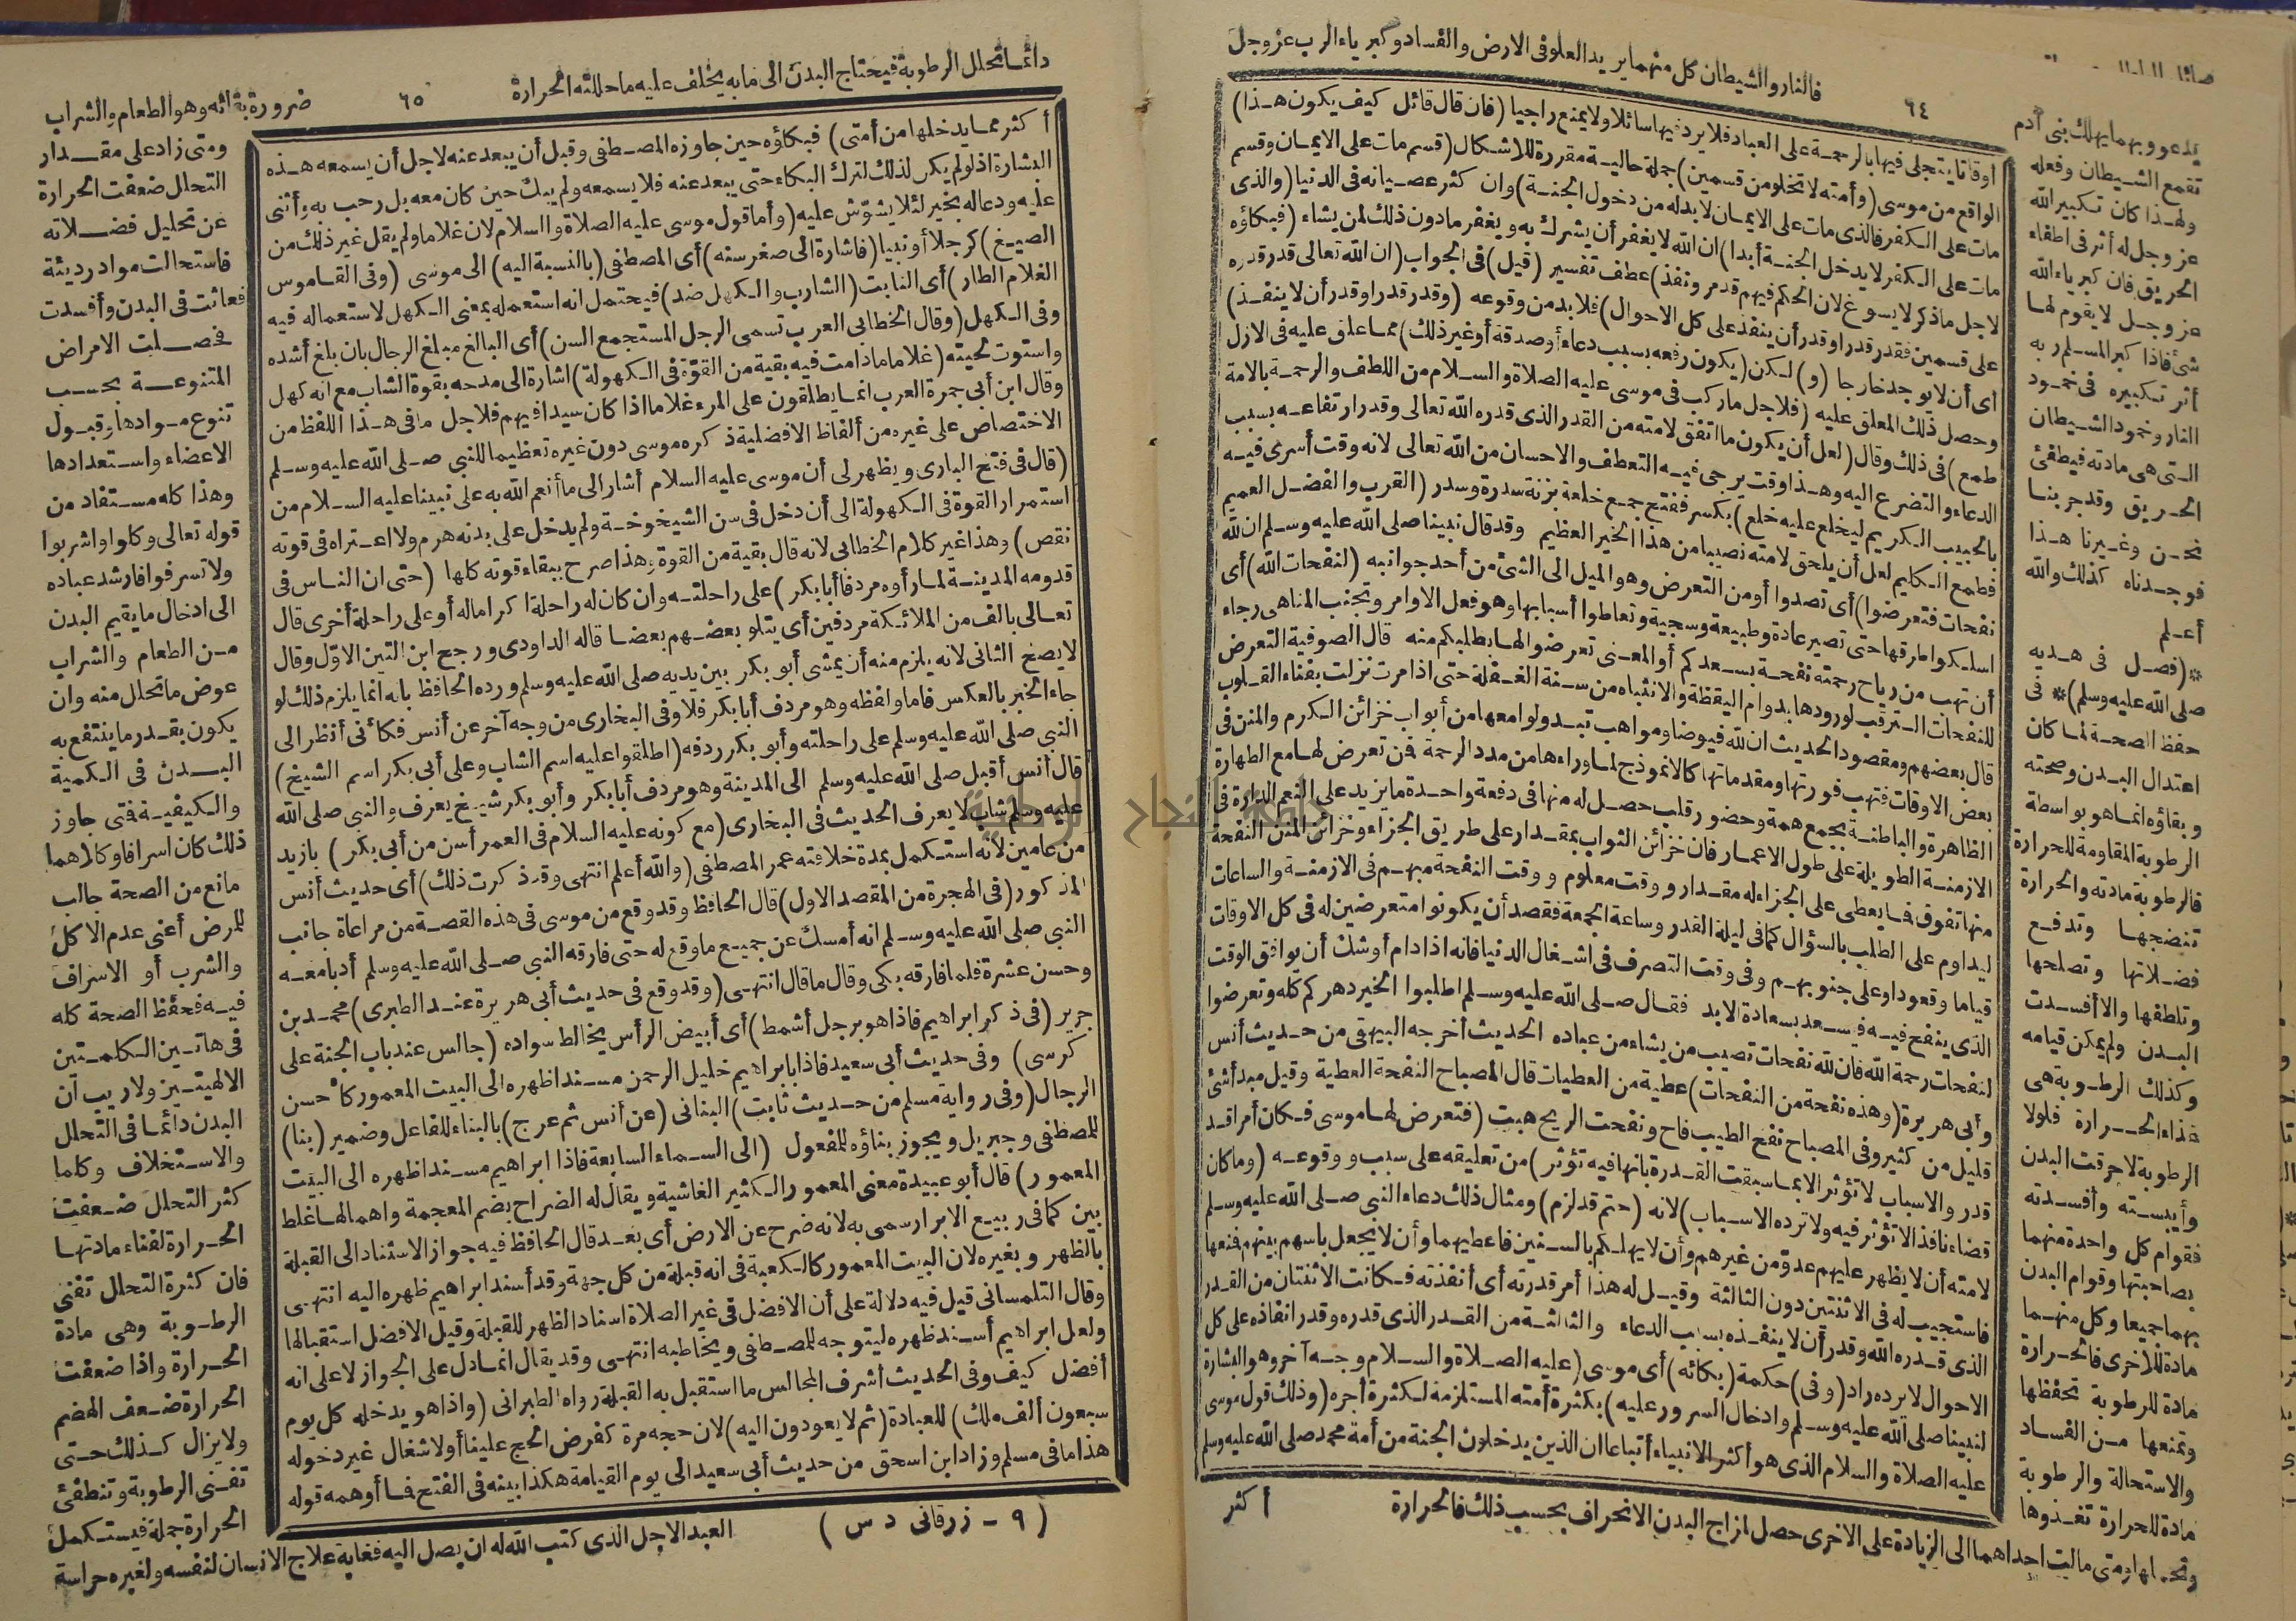 فالنار والشيطان كل منهما يريد العلو في الارض والفساد وكبرياء الرب عز وجل
٦٤
يدعو وبهما يهلك بني آدم
تقمع الشيطان وفعله
ولهذا كان تكبير الله
عز وجل له أثر في اطفاء
الحريق فان كبرياء الله
عز وجل لا يقوم لها
شئ فاذا كبر المسلم ربه
أثر تكبيره في خمود
النار وخمود الشيطان
التي هي مادته فيطفئ
الحريق وقد جربنا
نحن وغيرنا هذا
فوجدناه كذلك والله
أعلم
*(فصل في هديه
صلى الله عليه وسلم)* في
حفظ الصحة لما كان
اعتدال البدن وصحته
وبقاؤه انما هو بواسطة
الرطوبة المقاومة للحرارة
فالرطوبة مادته والحرارة
تنضجها وتدفع
فضلاتها وتصلحها
وتلطفها والا أفسدت
البدن ولم يمكن قيامه
وكذلك الرطوبة هي
غذاء الحرارة فلولا
الرطوبة لاحرقت البدن
وأيبسته وأفسدته
فقوام كل واحدة منهما
بصاحبتها وقوام البدن
بهما جميعا وكل منهما
مادة للاخرى فالحرارة
مادة للرطوبة تحفظها
وتمنعها من الفساد
والاستحالة والرطوبة
مادة للحرارة تغذوها
اوقاتا يتجلى فيها بالرحمة على العباد فلا يرد فيها سائلا ولا يمنع راجيا (فان قال قائل كيف يكون هذا)
الواقع من موسى (وأمته لا تخلو من قسمين) جملة حالية مقررة للاشكال (قسم مات على الايمان وقسم
مات على الكفر فالذي مات على الايمان لا بد له من دخول الجنة) وان كثر عصيانه في الدنيا (والذي
مات على الكفر لا يدخل الجنة أبدا) ان الله لا يغفر أن يشرك به ويغفر ما دون ذلك لمن يشاء (فبكاؤه
لاجل ما ذكر لا يسوغ لان الحكم فيهم قد مر ونفذ) عطف تفسير (قيل) في الجواب (ان الله تعالى قدر قدره
على قسمين فقدر قدرا وقدر أن ينفذ على كل الاحوال) فلا بد من وقوعه (وقدر قدرا وقدر أن لا ينفذ)
أي أن لا يوجد خارجا (و) لكن (يكون رفعه بسبب دعاء أو صدقة أو غير ذلك) مما علق عليه في الازل
وحصل ذلك المعلق عليه (فلاجل ما ركب في موسى عليه الصلاة والسلام من اللطف والرحمة بالامة
طمع) في ذلك وقال (لعل أن يكون ما اتفق لامته من القدر الذي قدره الله تعالى وقدر ارتفاعه بسبب
الدعاء والتضرع اليه وهذا وقت يرجى فيه التعطف والاحسان من الله تعالى لانه وقت أسرى فيه
بالحبيب الكريم ليخلع عليه خلع) بكسر ففتح جمع خلعة بزنة سدرة وسدر (القرب والفضل العميم
فطمع الكليم لعل أن يلحق لامته نصيبا من هذا الخير العظيم وقد قال نبينا صلى الله عليه وسلم ان لله
نفحات فتعرضوا) أي تصدوا أو من التعرض وهو الميل الى الشئ من أحد جوانبه (لنفحات الله) أي
اسلكوا طرقها حتى تصير عادة وطبيعة وسجية وتعاطوا أسبابها وهو فعل الاوامر وتجنب المناهي رجاء
أن تهب من رياح رحمته نفحة يسعدكم أو المعنى تعرضوا لها بطلبكم منه قال الصوفية التعرض
للنفحات الترقب لورودها بدوام اليقظة والانتباه من سنة الغفلة حتى اذا مرت نزلت بفناء القلوب
قال بعضهم ومقصود الحديث ان لله فيوضا ومواهب تبدو لوامعها من أبواب خزائن الكرم والمنن في
بعض الاوقات فتهب فورتها ومقدماتها كالانموذج لما وراءها من مدد الرحمة فمن تعرض لها مع الطهارة
الظاهرة والباطنة بجمع همة وحضور قلب حصل له منها في دفعة واحدة ما يزيد على النعم الدارة في
الازمنة الطويلة على طول الاعمار فان خزائن الثواب بمقدار على طريق الجزاء وخزائن المنن النفحة
منها تفوق فما يعطى على الجزاء له مقدار ووقت معلوم ووقت النفحة مبهم في الازمنة والساعات
ليداوم على الطلب بالسؤال كما في ليلة القدر وساعة الجمعة فقصد أن يكونوا متعرضين له في كل الاوقات
قياما وقعودا وعلى جنوبهم وفي وقت التصرف في اشغال الدنيا فانه اذا دام أوشك أن يوافق الوقت
الذي ينفح فيه فيسعد بسعادة الابد فقال صلى الله عليه وسلم اطلبوا الخير دهركم كله وتعرضوا
لنفحات رحمة الله فان لله نفحات تصيب من يشاء من عباده الحديث أخرجه البيهقي من حديث أنس
وأبي هريرة (وهذه نفحة من النفحات) عطية من العطيات قال المصباح النفحة العطية وقيل مبدأ شئ
قليل من كثير وفي المصباح نفح الطيب فاح ونفحت الريح هبت (فتعرض لها موسى فكان أمرا قد
قدر والاسباب لا تؤثر الا بما سبقت القدرة بانها فيه تؤثر) من تعليقه على سبب ووقوعه (وما كان
قضاء نافذا لا تؤثر فيه ولا ترده الاسباب) لانه (حتم قد لزم) ومثال ذلك دعاء النبي صلى الله عليه وسلم
لامته أن لا يظهر عليهم عدو من غيرهم وأن لا يهلكهم بالسنين فأعطيهما وأن لا يجعل باسهم بينهم فمنعها
فاستجيب له في الاثنتين دون الثالثة وقيل له هذا أمر قدرته أي أنفذته فكانت الاثنتان من القدر
الذي قدره الله وقدر أن لا ينفذه بسبب الدعاء والثالثة من القدر الذي قدره وقدر انفاذه على كل
الاحوال لا يرده راد (وفي) حكمة (بكائه) أي موسى (عليه الصلاة والسلام وجه آخر وهو البشارة
لنبينا صلى الله عليه وسلم وادخال السرور عليه) بكثرة أمته المستلزمة لكثرة أجره (وذلك قول موسى
عليه الصلاة والسلام الذي هو أكثر الانبياء أتباعا ان الذين يدخلون الجنة من أمة محمد صلى الله عليه وسلم
أكثر
ومتى مالت احداهما الى الزيادة على الاخرى حصل لمزاج البدن الانحراف بحسب ذلك فالحرارة
دائما تحلل الرطوبة فيحتاج البدن الى ما به يخلف عليه ما حللته الحرارة
٦٥
ضرورة بقائه وهو الطعام والشراب
أكثر مما يدخلها من أمتي) فبكاؤه حين جاوزه المصطفى وقبل أن يبعد عنه لاجل أن يسمعه هذه
البشارة اذ لو لم يكن لذلك لترك البكاء حتى يبعد عنه فلا يسمعه ولم يبك حين كان معه بل رحب به وأثنى
عليه ودعا له بخير لئلا يشوش عليه (وأما قول موسى عليه الصلاة والسلام لان غلاما ولم يقل غير ذلك من
الصيغ) كرجلا أو نبيا (فاشارة الى صغر سنه) أي المصطفى (بالنسبة اليه) الى موسى (وفي القاموس
الغلام الطار) أي النابت (الشارب والكهل ضد) فيحتمل انه استعمله بمعنى الكهل لاستعماله فيه
وفي الكهل (وقال الخطابي العرب تسمى الرجل المستجمع السن) أي البالغ مبلغ الرجال بان بلغ أشده
واستوت لحيته (غلاما ما دامت فيه بقية من القوة في الكهولة) اشارة الى مدحه بقوة الشاب مع انه كهل
وقال ابن أبي جمرة العرب انما يطلقون على المرء غلاما اذا كان سيدا فيهم فلاجل ما في هذا اللفظ من
الاختصاص على غيره من ألفاظ الافضلية ذكره موسى دون غيره تعظيما للنبي صلى الله عليه وسلم
(قال في فتح الباري ويظهر لي أن موسى عليه السلام أشار الى ما أنعم الله به على نبينا عليه السلام من
استمرار القوة في الكهولة الى أن دخل في سن الشيخوخة ولم يدخل على بدنه هرم ولا اعتراه في قوته
نقص) وهذا غير كلام الخطابي لانه قال بقية من القوة وهذا صرح ببقاء قوته كلها (حتى ان الناس في
قدومه المدينة لما رأوه مردفا أبا بكر) على راحلته وان كان له راحلة اكراما له أو على راحلة أخرى قال
تعالى بالف من الملائكة مردفين أي يتلو بعضهم بعضا قاله الداودي ورجح ابن التين الاول وقال
لا يصح الثاني لانه يلزم منه أن يمشي أبو بكر بين يديه صلى الله عليه وسلم ورده الحافظ بانه انما يلزم ذلك لو
جاء الخبر بالعكس فاما ولفظه وهو مردف أبا بكر فلا وفي البخاري من وجه آخر عن أنس فكأني أنظر الى
النبي صلى الله عليه وسلم على راحلته وأبو بكر ردفه (اطلقوا عليه اسم الشاب وعلى أبي بكر اسم الشيخ)
قال أنس أقبل صلى الله عليه وسلم الى المدينة وهو مردف أبا بكر وأبو بكر شيخ يعرف والنبي صلى الله
عليه وسلم شاب لا يعرف الحديث في البخاري (مع كونه عليه السلام في العمر أسن من أبي بكر) بازيد
من عامين لانه استكمل بمدة خلافته عمر المصطفى (والله أعلم انتهى وقد ذكرت ذلك) أي حديث أنس
المذكور (في الهجرة من المقصد الاول) قال الحافظ وقد وقع من موسى في هذه القصة من مراعاة جانب
النبي صلى الله عليه وسلم انه أمسك عن جميع ما وقع له حتى فارقه النبي صلى الله عليه وسلم أدبا معه
وحسن عشرة فلما فارقه بكى وقال ما قال انتهى (وقد وقع في حديث أبي هريرة عند الطبري) محمد بن
جرير (في ذكر ابراهيم فاذا هو برجل أشمط) أي أبيض الرأس يخالط سواده (جالس عند باب الجنة على
كرسي) وفي حديث أبي سعيد فاذا بابراهيم خليل الرحمن مسندا ظهره الى البيت المعمور كأحسن
الرجال (وفي رواية مسلم من حديث ثابت) البناني (عن أنس ثم عرج) بالبناء للفاعل وضمير (بنا)
للمصطفى وجبريل ويجوز بناؤه للمفعول (الى السماء السابعة فاذا ابراهيم مسندا ظهره الى البيت
المعمور) قال أبو عبيدة معنى المعمور الكثير الغاشية ويقال له الضراح بضم المعجمة واهمالها غلط
بين كما في ربيع الابرار سمى به لانه ضرح عن الارض أي بعد قال الحافظ فيه جواز الاستناد الى القبلة
بالظهر وبغيره لان البيت المعمور كالكعبة في انه قبلة من كل جهة وقد أسند ابراهيم ظهره اليه انتهى
وقال التلمساني قيل فيه دلالة على أن الافضل في غير الصلاة اسناد الظهر للقبلة وقيل الافضل استقبالها
ولعل ابراهيم أسند ظهره ليتوجه للمصطفى ويخاطبه انتهى وقد يقال انما دل على الجواز لا على انه
أفضل كيف وفي الحديث أشرف المجالس ما استقبل به القبلة رواه الطبراني (واذا هو يدخله كل يوم
سبعون ألف ملك) للعبادة (ثم لا يعودون اليه) لان حجه مرة كفرض الحج علينا أو لاشغال غير دخوله
هذا ما في مسلم وزاد ابن اسحق من حديث أبي سعيد الى يوم القيامة هكذا بينه في الفتح فما أوهمه قوله
ومتى زاد على مقدار
التحلل ضعفت الحرارة
عن تحليل فضلاته
فاستحالت مواد رديئة
فعاثت في البدن وأفسدت
فحصلت الامراض
المتنوعة بحسب
تنوع موادها وقبول
الاعضاء واستعدادها
وهذا كله مستفاد من
قوله تعالى وكلوا واشربوا
ولا تسرفوا فارشد عباده
الى ادخال ما يقيم البدن
من الطعام والشراب
عوض ما تحلل منه وان
يكون بقدر ما ينتفع به
البدن في الكمية
والكيفية فمتى جاوز
ذلك كان اسرافا وكلاهما
مانع من الصحة جالب
للمرض أعني عدم الاكل
والشرب أو الاسراف
فيه فحفظ الصحة كله
في هاتين الكلمتين
الالهيتين ولا ريب أن
البدن دائما في التحلل
والاستخلاف وكلما
كثر التحلل ضعفت
الحرارة لفناء مادتها
فان كثرة التحلل تفني
الرطوبة وهي مادة
الحرارة واذا ضعفت
الحرارة ضعف الهضم
ولا يزال كذلك حتى
تفنى الرطوبة وتنطفئ
الحرارة جملة فيستكمل
(٩ - زرقاني د س)
العبد الاجل الذي كتب الله له ان يصل اليه فغاية علاج الانسان لنفسه ولغيره حراسة